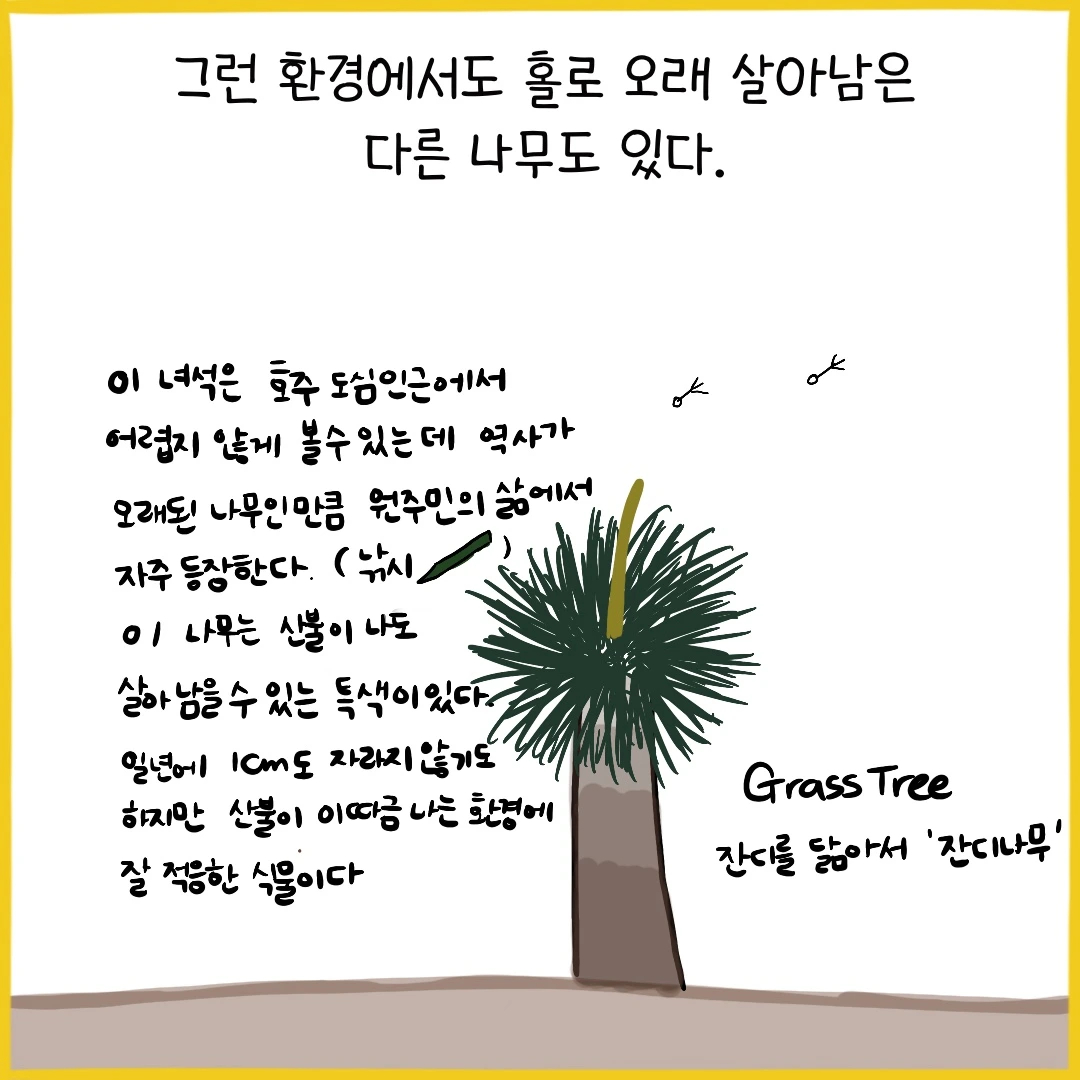 그런 환경에서도 홀로 오래 살아남은
다른 나무도 있다.
이 녀석은 호주 도심인근에서
어렵지 않게 볼수 있는데 역사가
오래된 나무인만큼 원주민의 삶에서
자주 등장한다. (낚시 )
이 나무는 산불이 나도
살아남을 수 있는 특색이있다.
일년에 1cm도 자라지 않기도
하지만 산불이 이따금 나는 환경에
잘 적응한 식물이다
Grass Tree
잔디를 닮아서 '잔디나무'